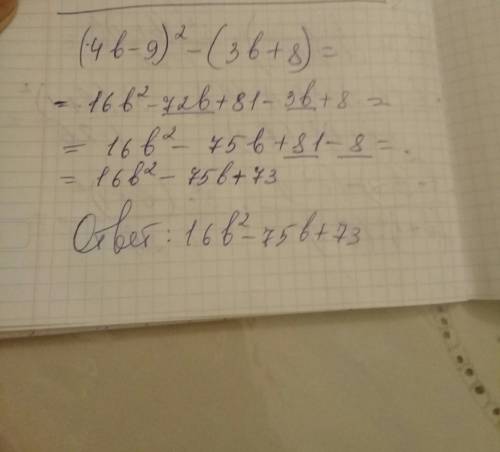 (4b-9)² - (3b+8) =
= 16b² - 72b + 81 - 3b + 8 =
= 16b² - 75b + 81 - 8 =
= 16b² - 75b + 73
Ответ: 16b² - 75b + 73